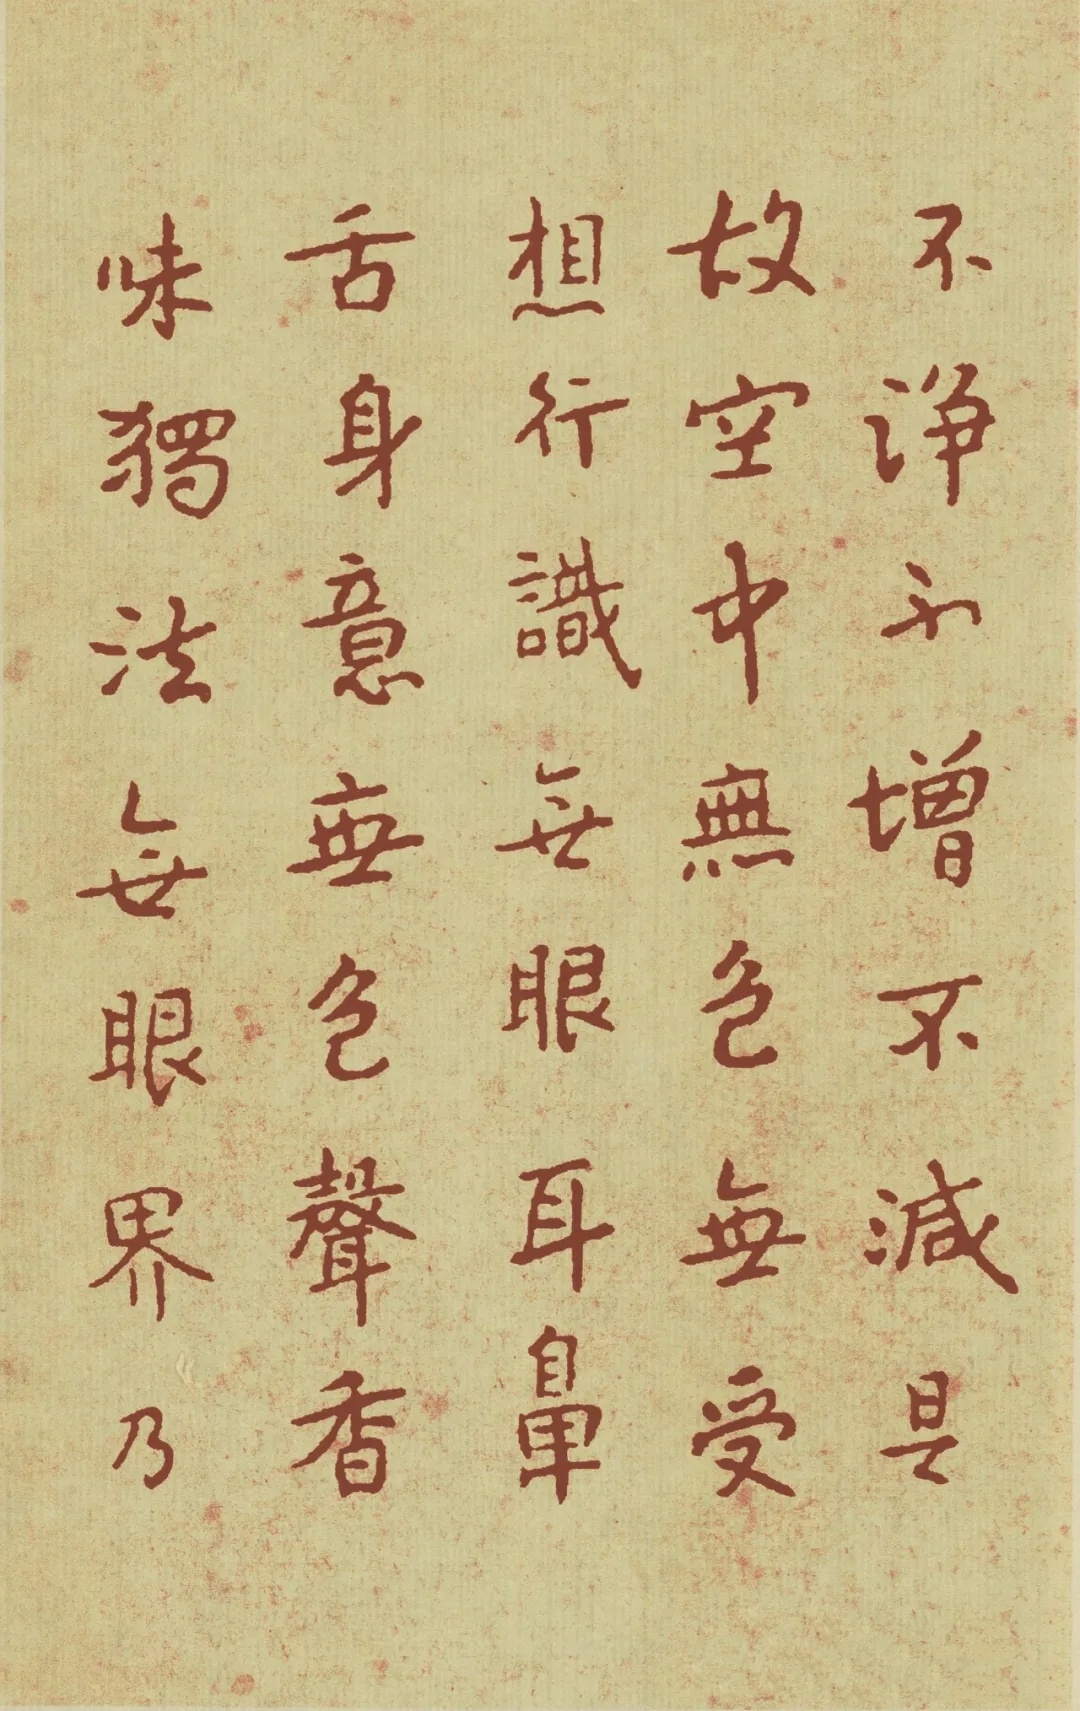 不淨不增不減是
故空中無色無受
想行識無眼耳鼻
舌身意無色聲香
味獨法無眼界乃